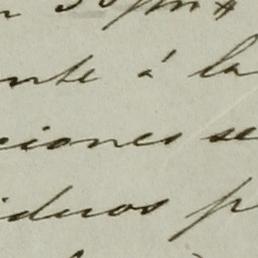 nte á la
ciones se
iduos p